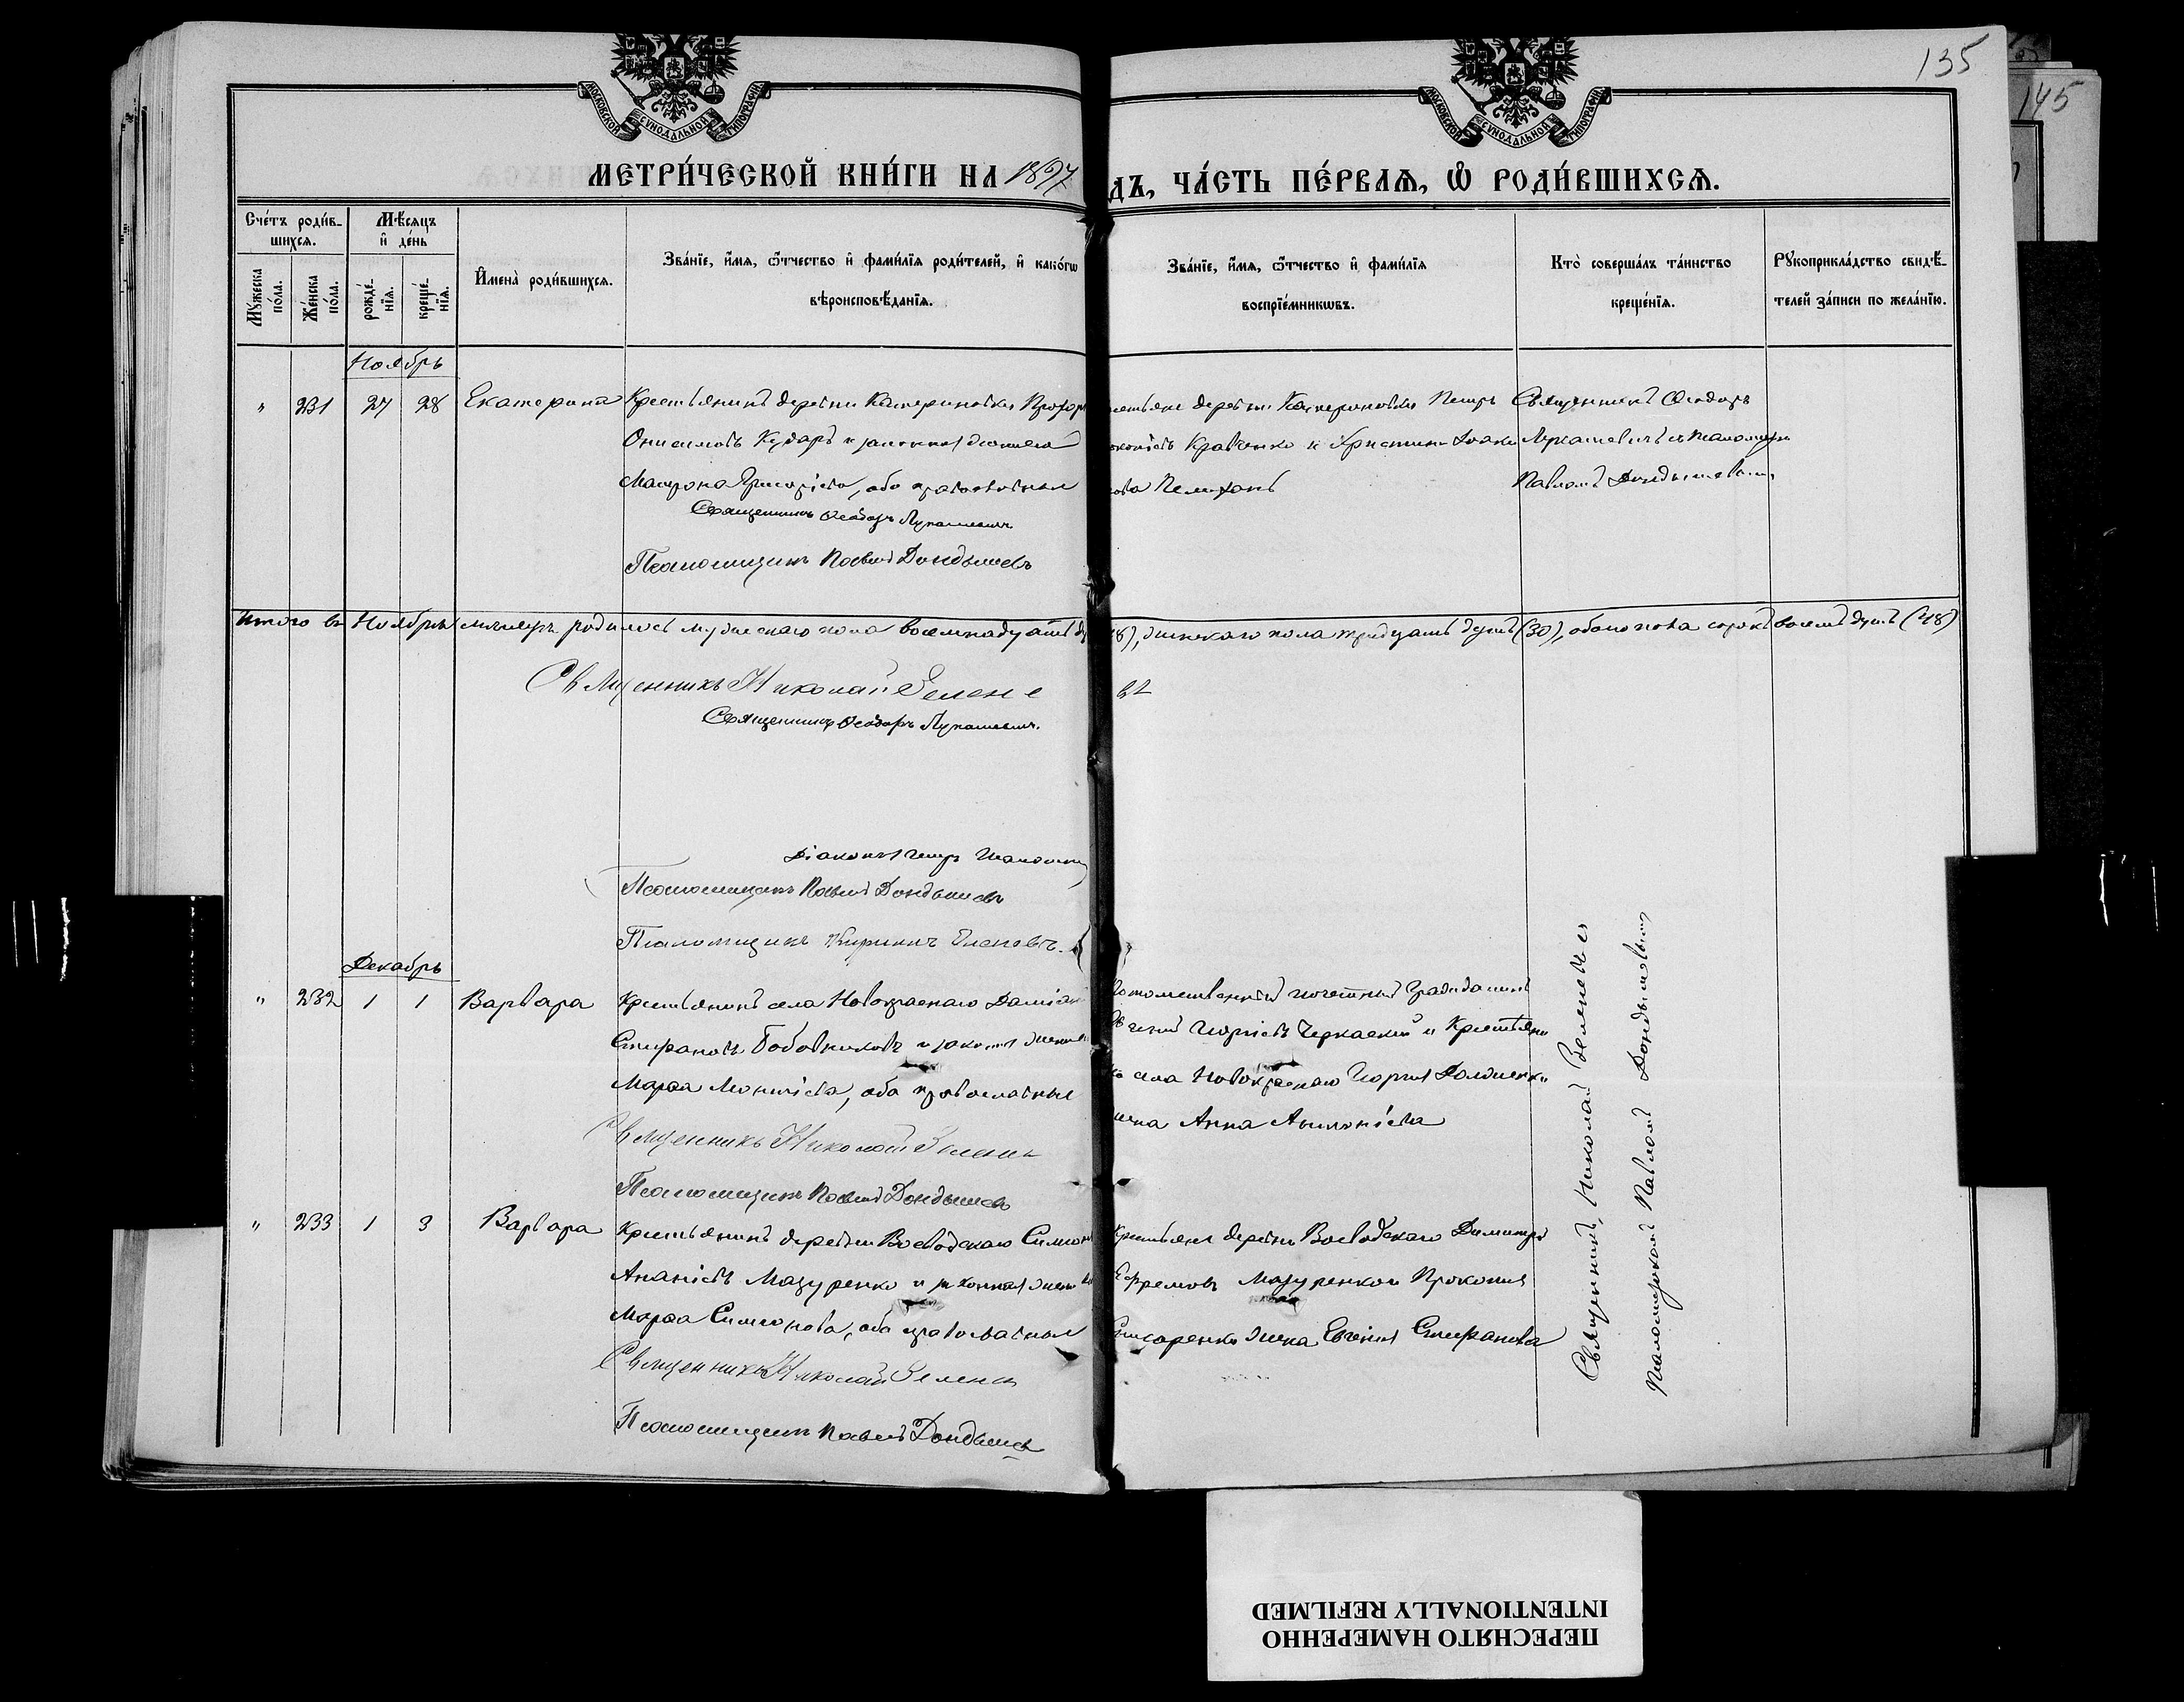 135
145
МОСКОВСКОЙ СѴНОДАЛЬНОЙ ТИПОГРАФІИ
МОСКОВСКОЙ СѴНОДАЛЬНОЙ ТИПОГРАФІИ
МЕТРИ́ЧЕСКОЙ КНИ́ГИ НА 1897
ДЪ, ЧА́СТЬ ПЕ́РВАѦ, Ѽ РОДИ́ВШИХСѦ.
Сче́тъ роди́в-
шихсѧ.
Мѣ́сяцъ
и҆ де́нь
Мꙋ́жеска по́ла.
Же́нска по́ла.
рожде́-
нїѧ.
креще́-
нїѧ.
И҆мена̀ роди́вшихсѧ.
Зва́нїе, и҆́мѧ, ѻ҆́тчество и҆ фами́лїѧ роди́телей, и҆ како́гѡ
вѣроисповѣ́данїѧ.
Зва́нїе, и҆́мѧ, ѻ҆́тчество и҆ фами́лїѧ
воспрїе́мникѡвъ.
Кто̀ соверша́лъ та́инство
креще́нїѧ.
Рꙋкоприкла́дство свидѣ́-
телей за́писи по жела́нїю.
Ноябрь
" 231 27 28 Екатерина Крестьянинъ деревни Катериновки
Онисимовъ Кударъ и законная жена его
Матрона Григоріева, оба православные
Священникъ Ѳеодоръ Лукашевичъ
Псаломщикъ Павелъ Дондышевъ
деревни Катериновки Петръ
Кравченко и Христина
Священникъ Ѳеодоръ
Лукашевичъ съ псаломщик.
Павломъ Дондышевымъ
Итого въ Ноябрѣ мѣсяцѣ родилось мужескаго пола восемнадцать 18), женскаго пола тридцать душъ (30), обоего пола сорокъ восемь душъ (48)
Священникъ Николай Зелене
Священникъ Ѳеодоръ Лукашевичъ.
Діаконъ Петръ
Псаломщикъ Павелъ Дондышевъ
Псаломщикъ Кириллъ
Декабрь
" 232 1 1 Варвара Крестьянинъ села Новокраснаго Даміан
Стефановъ Бобовниковъ и законная жена
Марѳа Леонтіева, оба православные
Священникъ Николай Зелене
Псаломщикъ Павелъ Дондышевъ
Потомственный почетный гражданинъ
Георгіевъ Черкаскій и Крестьян
села Новокраснаго Георгія
жена Анна Антоніева
" 233 1 3 Варвара Крестьянинъ деревни Воеводскаго Симеон
Ананіевъ Мазуренко и законная жена
Марѳа Симеонова, оба православные
Священникъ Николай Зелене
Псаломщикъ Павелъ Дондышевъ
Крестьяне деревни Воеводскаго Димитрій
Ефремовъ Мазуренко и Прокопія
жена Евгенія Стефанова
Священникъ Николай Зеленевъ съ
Псаломщикомъ Павломъ Дондышевымъ
ПЕРЕСНЯТО НАМЕРЕННО
INTENTIONALLY REFILMED